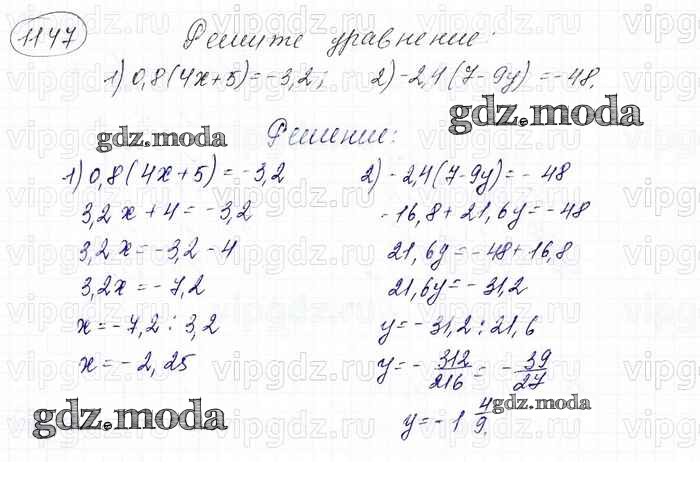 1147 Решите уравнение:
1) 0,8(4x+5)=-3,2; 2) -2,4(7-9y)=-48.
gdz.moda
gdz.moda
Решение:
1) 0,8(4x+5)=-3,2
3,2x+4=-3,2
3,2x=-3,2-4
3,2x=-7,2
x=-7,2:3,2
x=-2,25
2) -2,4(7-9y)=-48
-16,8+21,6y=-48
21,6y=-48+16,8
21,6y=-31,2
y=-31,2:21,6
y=-312/216=-39/27
y=-1 4/9.
gdz.moda
gdz.moda
vipgdz.ru